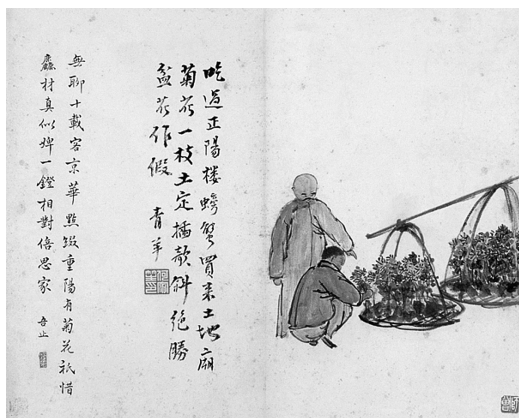 吃過正陽楼螃蟹買来土地廟
菊花一枝土定插欹斜絕勝
盆花作假 青羊
無聊十載客京華點綴重陽有菊花祇惜
蠢材真似婢一鐙相對倍思家 吾止